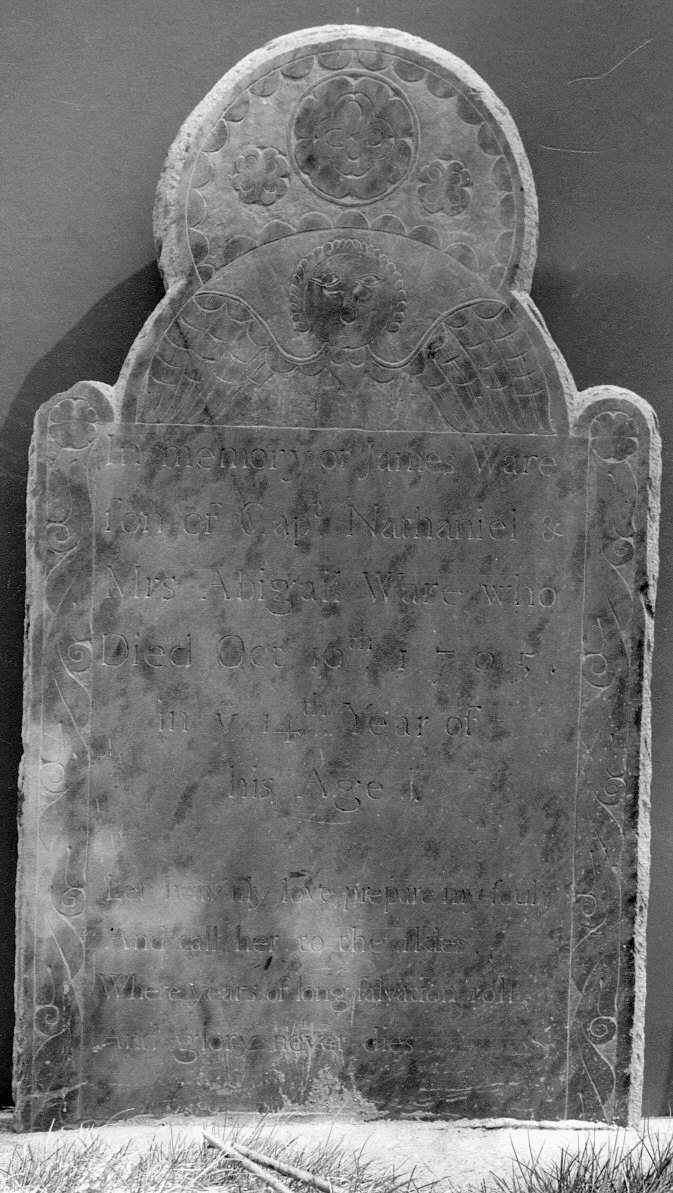 In memory of James Ware
ſon of Capᵗ Nathaniel &
Mrs Abigail Ware who
Died Oct 10ᵗʰ 1795.
in yᵉ 14ᵗʰ Year of
his Age
Let heav'nly Love prepare my ſoul
And call her to the ſkies
Where years of long ſalvation roll
And glory never dies